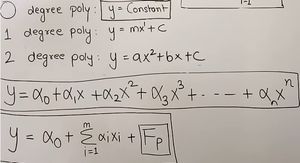 0 degree poly: y = Constant
1 degree poly: y = mx¹ + c
2 degree poly: y = ax² + bx + c
y = α₀ + α₁x + α₂x² + α₃x³ + - - - - + αₙxⁿ
y = α₀ + ∑ᵢ₌₁ᵐ αᵢxᵢ + Fₚ